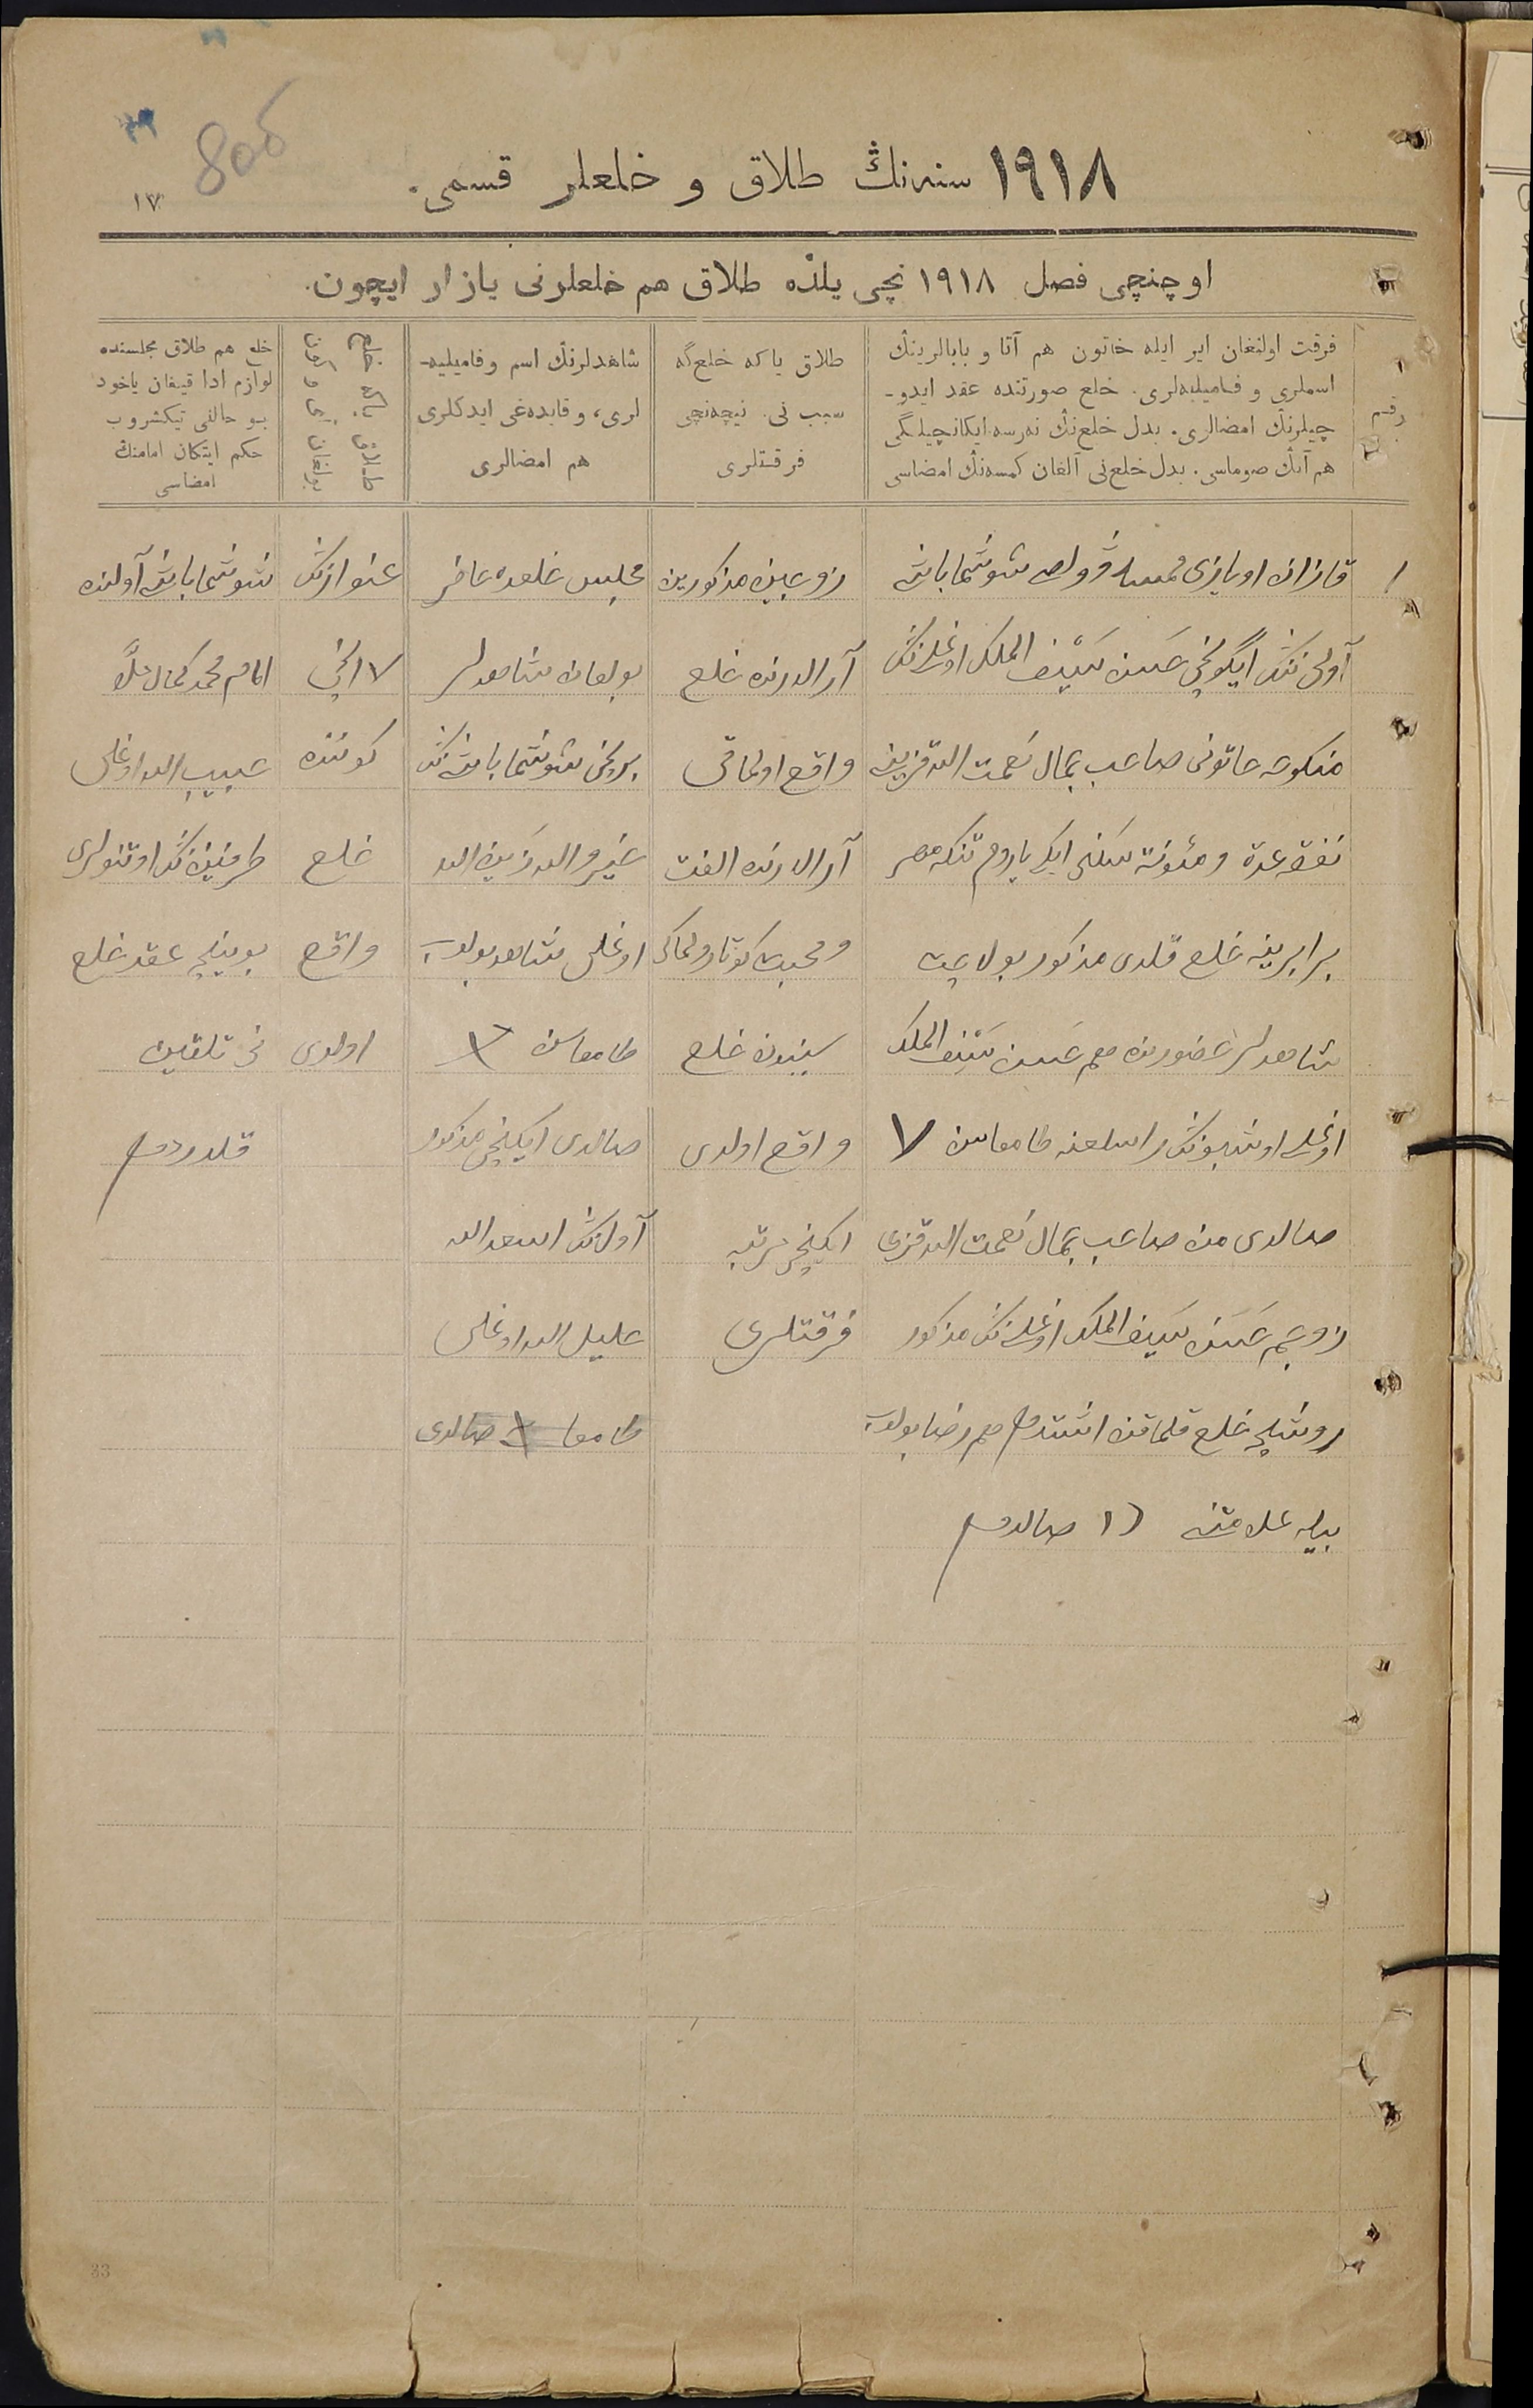 80об
١٧
١٩١٨ سنه‌نڭ طلاق و خلعلر قسمی.
اوچنچی فصل ١٩١٨ نچی یلده طلاق هم خلعلرنی یازار ایچون.
رقم
فرقت اولنغان ایر ایله خاتون هم آتا و بابالرینڭ
اسملری و فامیلیه‌لری. خلع صورتنده عقد ایدو-
چیلرنڭ امضالری. بدل خلع‌نڭ نه‌رسه ایکانچیلگی
هم آنڭ صوماسی. بدل خلع‌نی آلغان کمسه‌نڭ امضاسی
طلاق یا که خلع‌گه
سبب نی. نیچه‌نچی
فرقتلری
شاهدلرنڭ اسم وفامیلیه-
لری، و قایده‌غی ایدکلری
هم امضالری
طلاق یاکه خلع
بولغان آی و کون
خلع هم طلاق مجلسنده
لوازم ادا قیلغان یاخود
بو حالنی تیکشروب
حکم ایتکان امامنڭ
امضاسی
١
قازان اویازی
آولی‌نڭ حسن سیف الملک اوغلی‌نڭ
منکوحه خاتونی صاحب جمال نعمت الله قزینه
نفقه عدة و مئونة سکنی ایکی یاروم تنکه مهر
برابرینه خلع قلدی مذکور بولاچق
شاهدلر حضورنده هم حسن سیف الملک
اوغلی اوشبونڭ راسلغنه طامغاسن ٧
صالدی من صاحب جمال نعمت الله قزی
زوجم حسن سیف الملک اوغلی‌نڭ مذکور
روشلچه خلع قلماقن اشتدم هم رضا بولوب
بیله علامتنه صالدوم
زوجین مذکورین
آرالارنده خلع
واقع اولماقی
آرالارنده الفت
و محبت کوتارولماکی
سببندن خلع
واقع اولدی
ایکنچی مرتبه
فرقتلری
مجلس خلعده حاضر
بولغان شاهدلر
برنچی
خیر الله زین الله
اوغلی شاهد بولوب
طامغاسن X
صالدی ایکنچی مذکور
آول‌نڭ اسعد الله
خلیل الله اوغلی
طامغا X صالدی
کوننده
خلع
واقع
اولدی
آولنده
امام محمد کمال ملا
حبیب الله اوغلی
طرفین‌نڭ اوتنولری
بوینچه عقد خلع
نی تلقین
قلدردوم
33